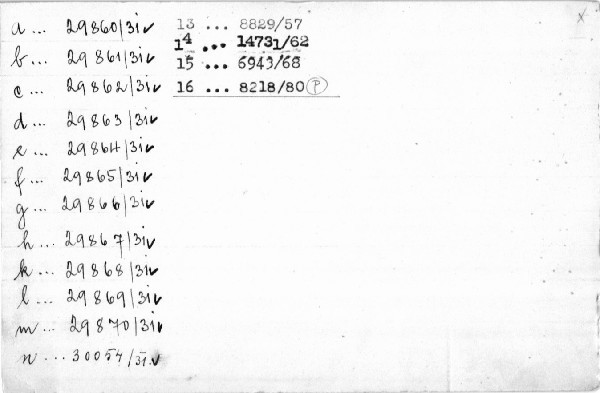 a ... 29860/31✓
b ... 29861/31✓
c ... 29862/31✓
d ... 29863/31✓
e ... 29864/31✓
f ... 29865/31✓
g ... 29866/31✓
h ... 29867/31✓
k ... 29868/31✓
l ... 29869/31✓
m ... 29870/31✓
n ... 30054/31.✓
13 ... 8829/57
14 ... 14731/62
15 ... 6943/68
16 ... 8218/80 P
x